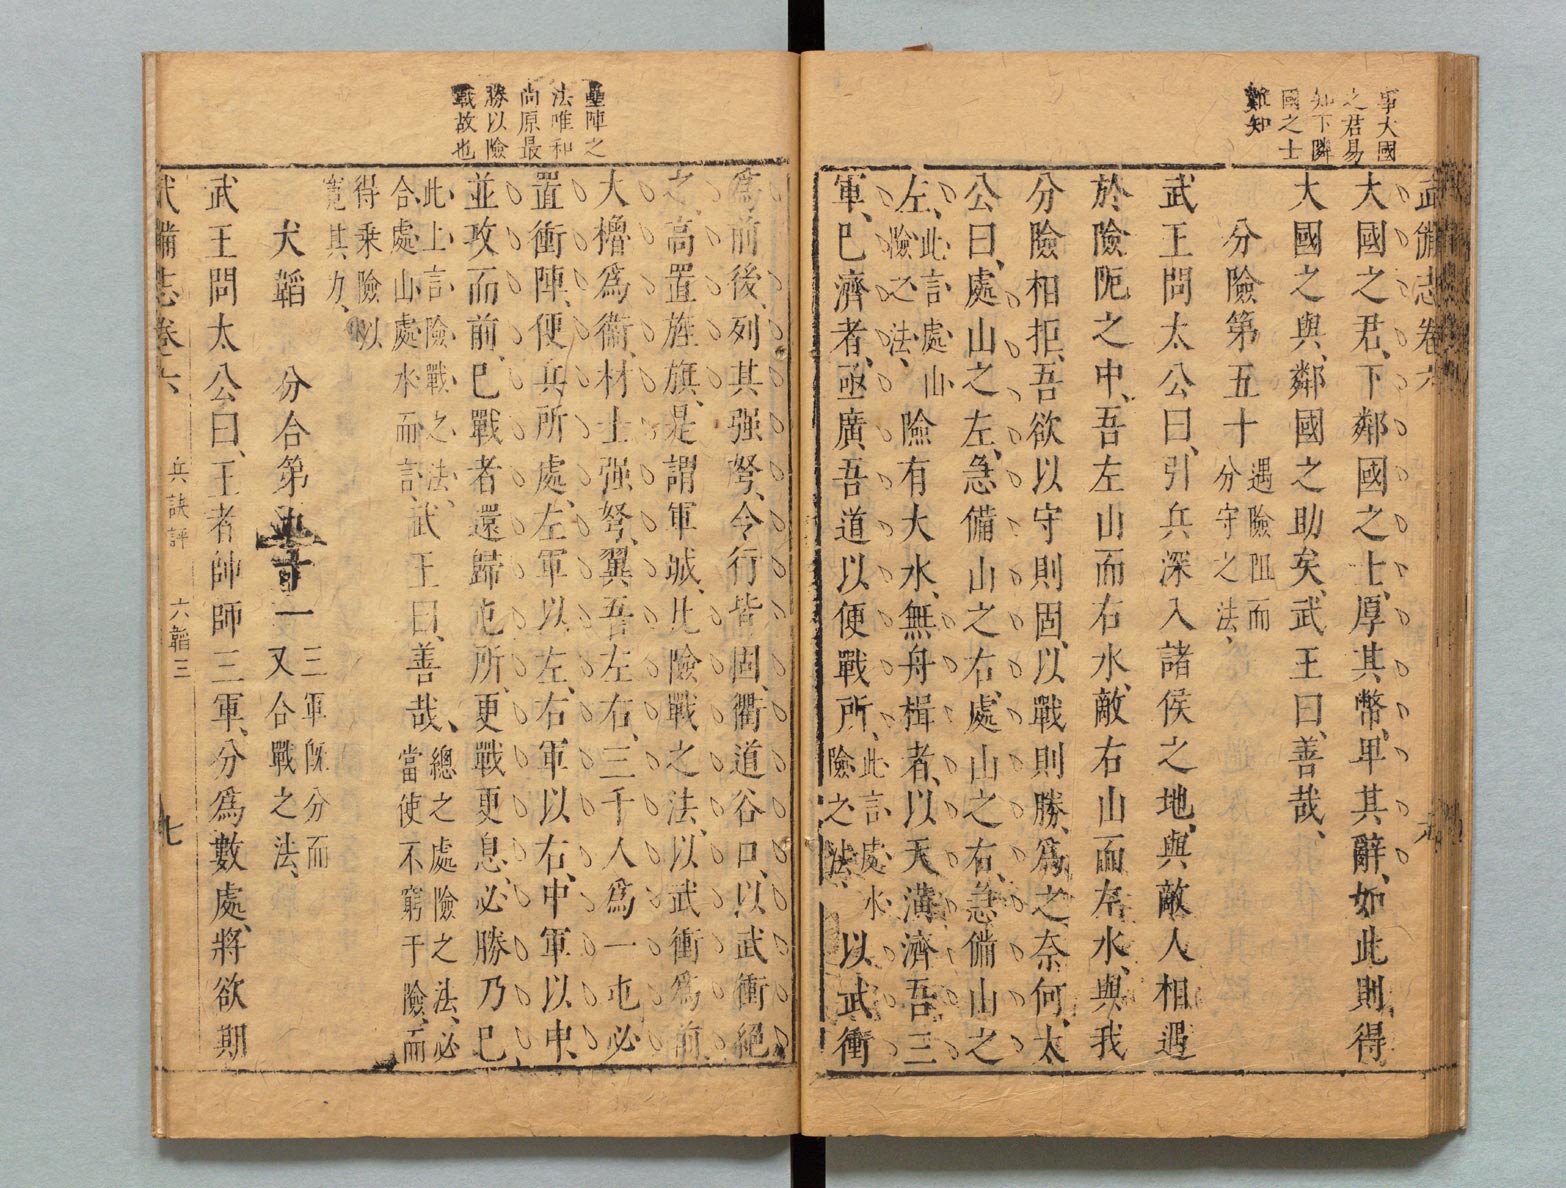 事大國
之君易
知下隣
國之士
難知
武備志卷六
大國之君、下鄰國之士、厚其幣、卑其辭、如此則得
大國之與、鄰國之助矣、武王曰、善哉、
分險第五十
遇險阻而
分守之法、
武王問太公曰、引兵深入諸侯之地、與敵人相遇
於險阨之中、吾左山而右水、敵右山而左水、與我
分險相拒、吾欲以守則固、以戰則勝、爲之奈何、太
公曰、處山之左、急備山之右、處山之右、急備山之
左、
此言處山
險之法、
險有大水、無舟楫者、以天潢濟吾三
軍、已濟者、亟廣吾道以便戰所、
此言處水
險之法、
以武衝
壘陣之
法唯和
尚原最
勝以險
戰故也
爲前後、列其强弩、令行皆固、衢道谷口、以武衝絕
之、高置旌旗、是謂軍城、凡險戰之法、以武衝爲前、
大櫓爲衞、材士强弩、翼吾左右、三千人爲一屯、必
置衝陣、便兵所處、左軍以左、右軍以右、中軍以中、
並攻而前、已戰者還歸屯所、更戰更息、必勝乃已、
此上言險戰之法、
合處山處水而言、
武王曰、善哉、
總之處險之法、必
當使不窮于險、而
得乘險以
寬其力、
犬韜
分合第五十一
三軍旣分而
又合戰之法、
武王問太公曰、王者帥師三軍、分爲數處、將欲期
武備志卷六
兵訣評
六韜三
七